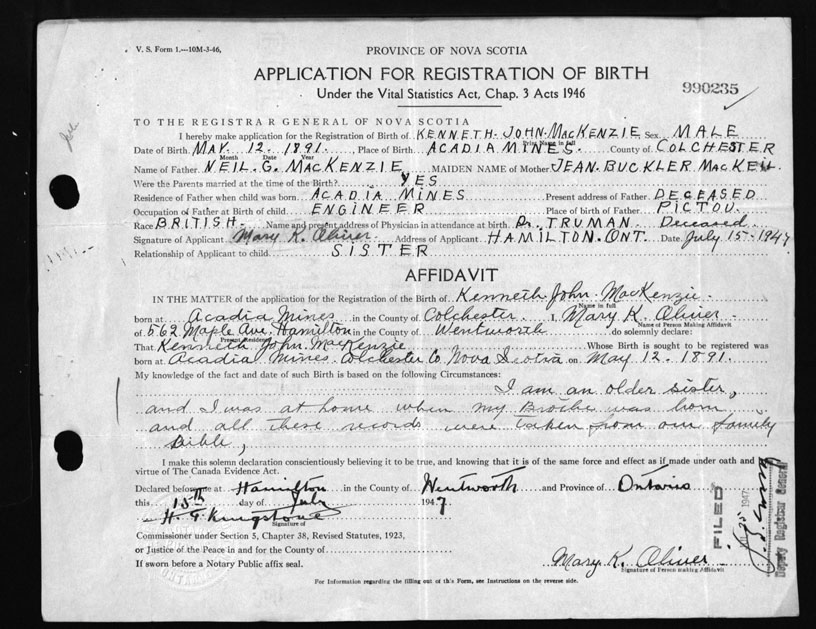 V. S. Form 1.—10M-3-46,
PROVINCE OF NOVA SCOTIA
APPLICATION FOR REGISTRATION OF BIRTH
990235
Under the Vital Statistics Act, Chap. 3 Acts 1946
TO THE REGISTRAR GENERAL OF NOVA SCOTIA
I hereby make application for the Registration of Birth of KENNETH JOHN MACKENZIE Sex MALE
Print Name in full
Date of Birth MAY. 12. 1891. Place of Birth ACADIA MINES. County of COLCHESTER
Month Date Year
Name of Father NEIL G. MACKENZIE MAIDEN NAME of Mother JEAN BUCKLER MACKEIL
Were the Parents married at the time of the Birth? YES
Residence of Father when child was born ACADIA MINES Present address of Father DECEASED
Occupation of Father at Birth of child ENGINEER Place of birth of Father PICTOU.
Race BRITISH. Name and present address of Physician in attendance at birth Dr. TRUMAN. Deceased
Signature of Applicant Mary K. Oliver Address of Applicant HAMILTON. ONT. Date July 15-1947
Relationship of Applicant to child SISTER
AFFIDAVIT
IN THE MATTER of the application for the Registration of the Birth of Kenneth John MacKenzie
Name in full
born at Acadia Mines in the County of Colchester I, Mary K. Oliver
Name of Person Making Affidavit
of 562 Maple Ave, Hamilton in the County of Wentworth do solemnly declare:
Present Residence
That Kenneth John MacKenzie Whose Birth is sought to be registered was
born at Acadia Mines Colchester Co. Nova Scotia on May 12. 1891.
My knowledge of the fact and date of such Birth is based on the following Circumstances:
I am an older sister,
and I was at home when my Brother was born
and all these records were taken from our family
Bible,
I make this solemn declaration conscientiously believing it to be true, and knowing that it is of the same force and effect as if made under oath and by
virtue of The Canada Evidence Act.
Declared before me at Hamilton in the County of Wentworth and Province of Ontario
this 15th day of July 1947
H. G. Kingstone
Signature of
Commissioner under Section 5, Chapter 38, Revised Statutes, 1923,
or Justice of the Peace in and for the County of
If sworn before a Notary Public affix seal.
Mary K. Oliver
Signature of Person making Affidavit
For Information regarding the filling out of this Form, see Instructions on the reverse side.
FILED
25 1947
Deputy Registrar General